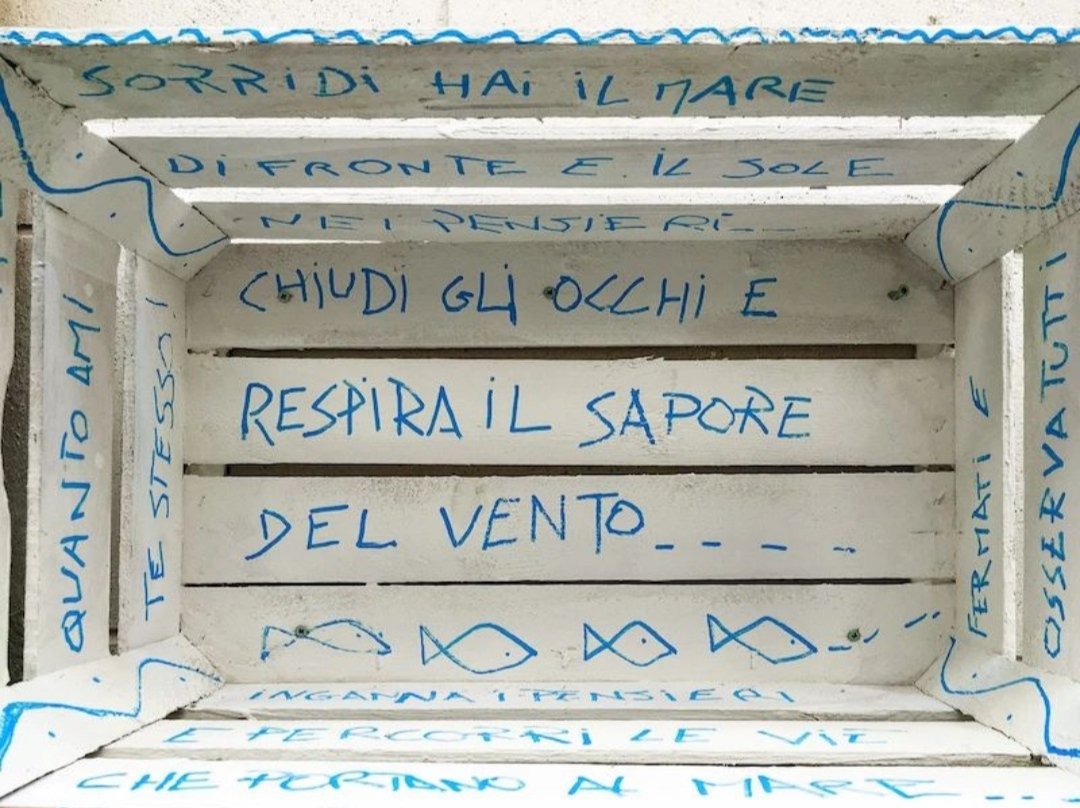 SORRiDi HAi iL MARE
Di FRONTE E iL SOLE
NEI PENSIERI...
CHiUDi GLi OCCHi E
RESPiRA iL SAPORE
DEL VENTO_ _ _ _ _
INGANNA I PENSIERI
E PERCORRI LE VIE
CHE PORTANO AL MARE...
QUANTO AMI
TE STESSO!
FERMATI E
OSSERVA TUTTI